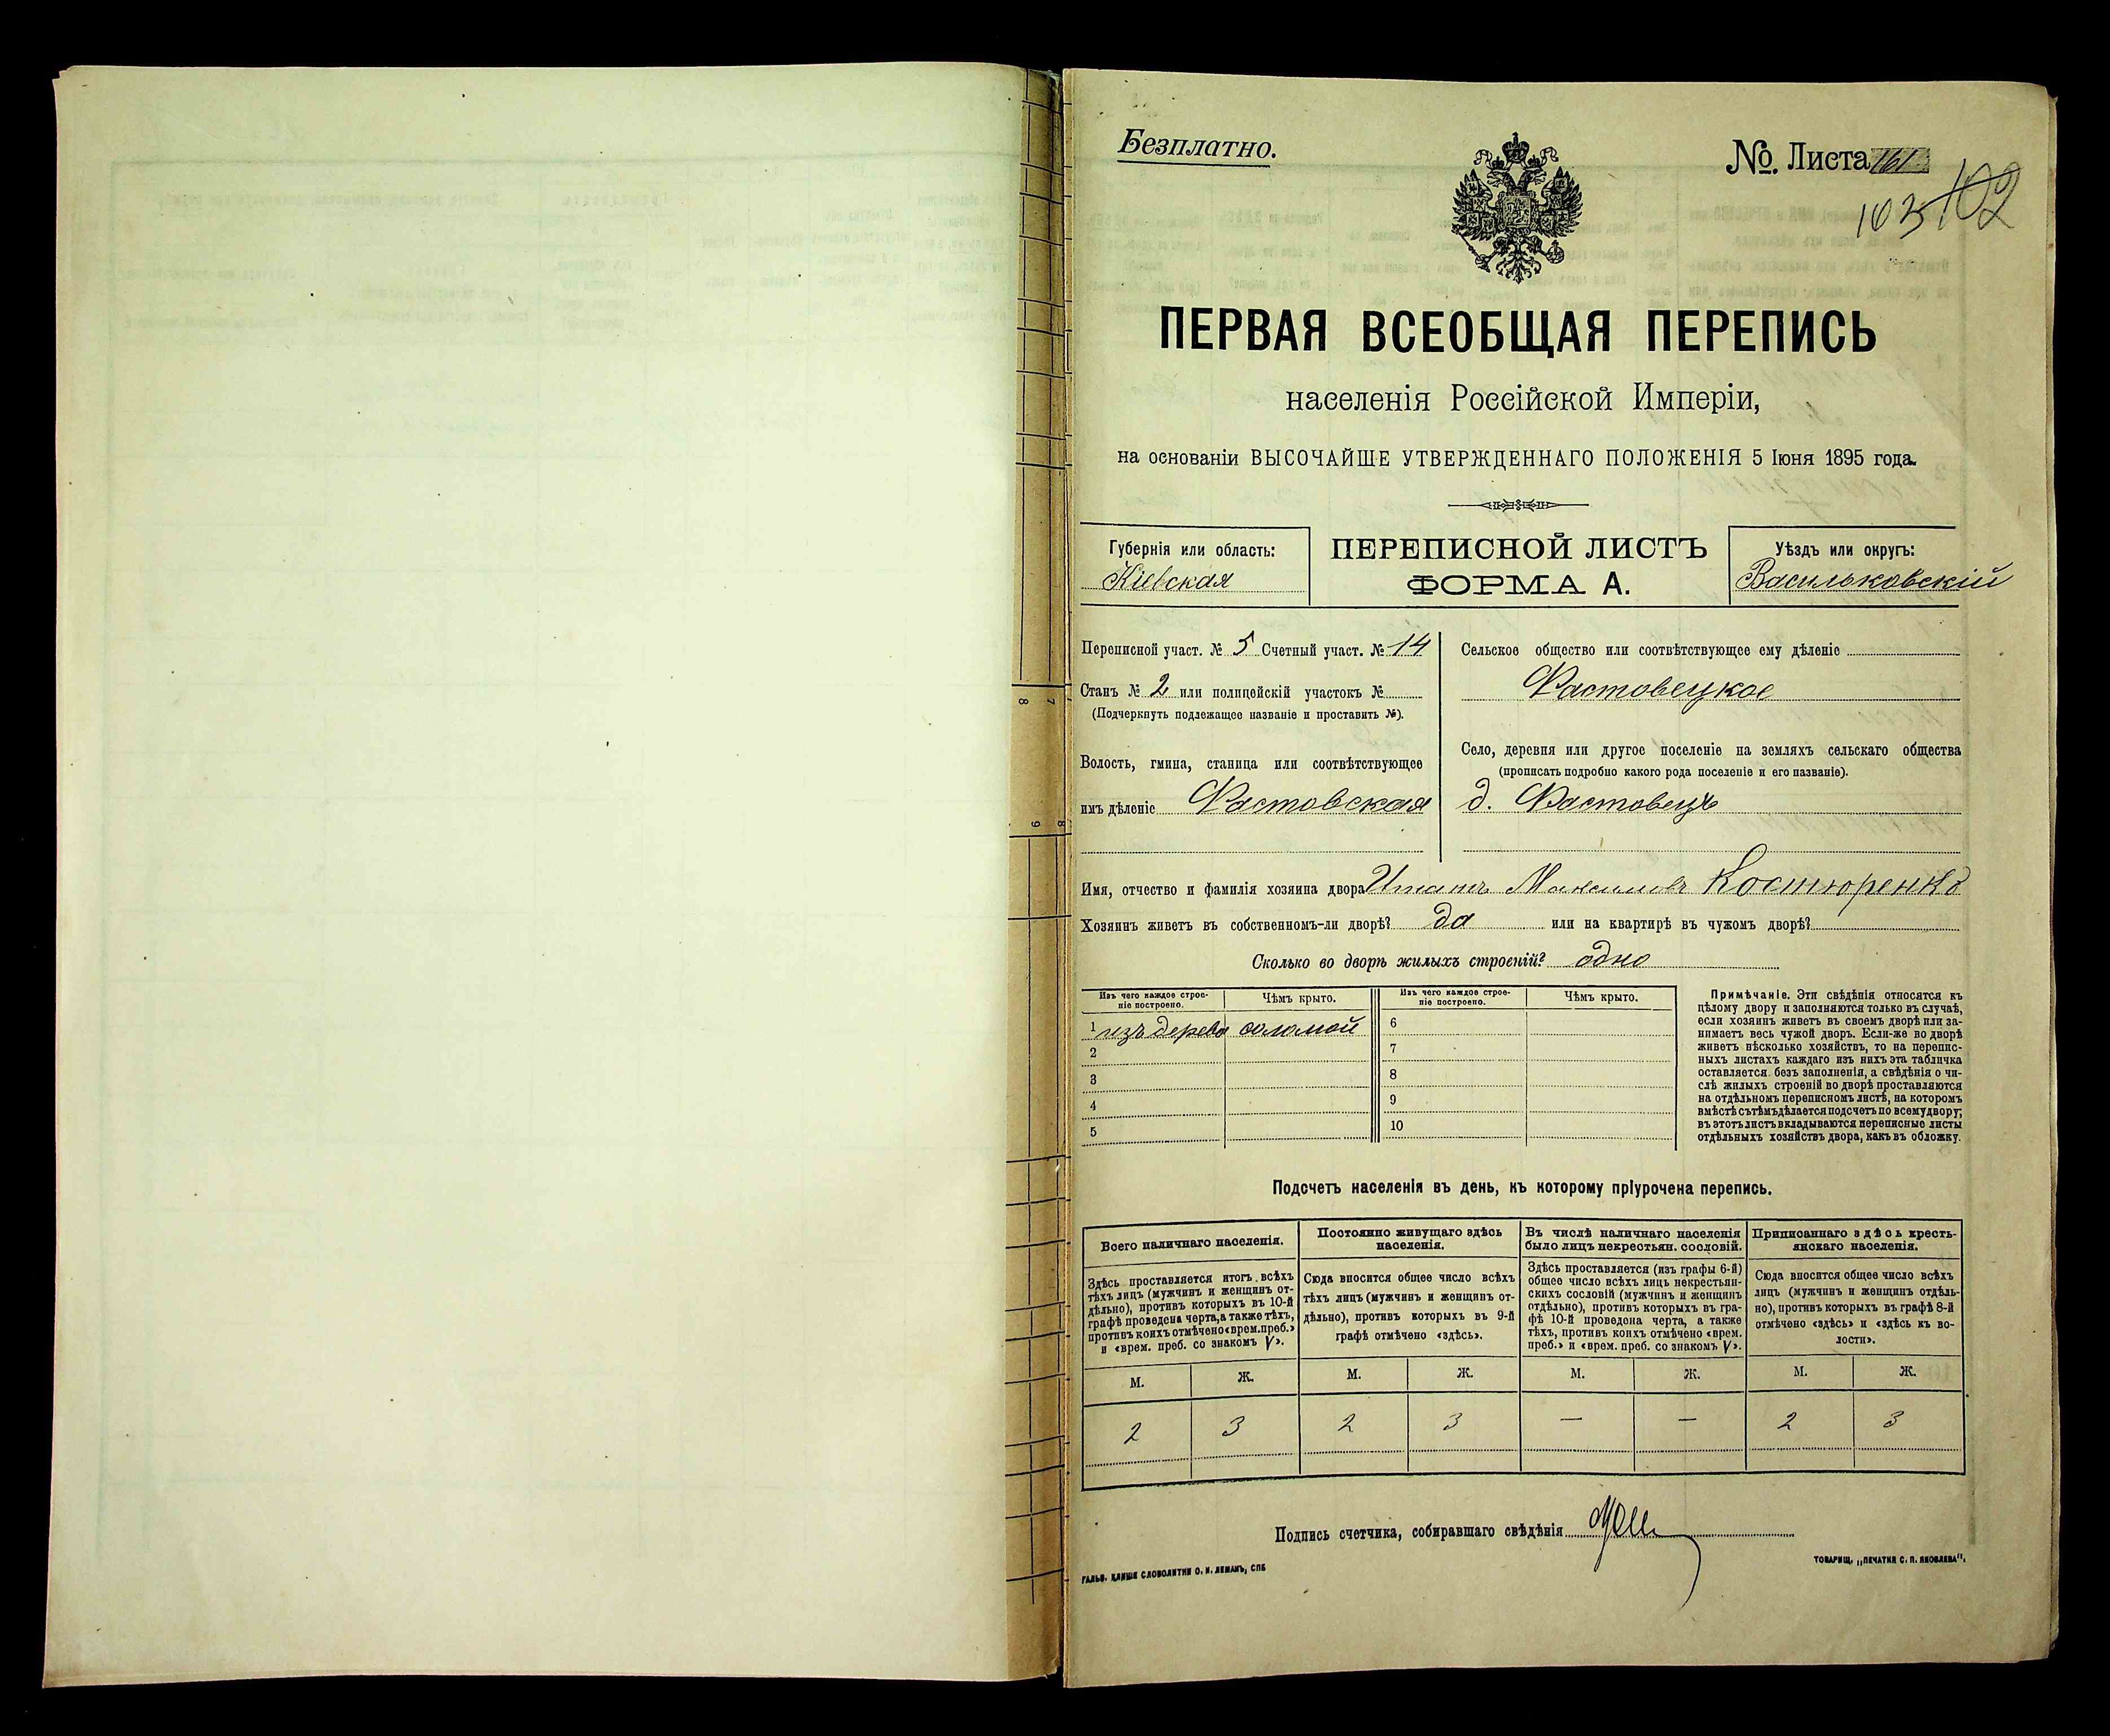 Безплатно.
№. Листа 161
103 102
ПЕРВАЯ ВСЕОБЩАЯ ПЕРЕПИСЬ
населенія Россійской Имперіи,
на основаніи ВЫСОЧАЙШЕ УТВЕРЖДЕННАГО ПОЛОЖЕНІЯ 5 Іюня 1895 года.
Губернія или область:
Кіевская
ПЕРЕПИСНОЙ ЛИСТЪ
ФОРМА А.
Уѣздъ или округъ:
Васильковскій
Переписной участ. № 5 Счетный участ. № 14
Станъ № 2 или полицейскій участокъ №
(Подчеркнуть подлежащее названіе и проставить №).
Волость, гмина, станица или соотвѣтствующее
имъ дѣленіе Фастовская
Сельское общество или соотвѣтствующее ему дѣленіе
Фастовецкое
Село, деревня или другое поселеніе на земляхъ сельскаго общества
(прописать подробно какого рода поселеніе и его названіе).
д. Фастовецъ
Имя, отчество и фамилія хозяина двора Игнатъ Максимовъ Костюренко
Хозяинъ живетъ въ собственномъ-ли дворѣ? да или на квартирѣ въ чужомъ дворѣ?
Сколько во дворѣ жилыхъ строеній? одно
Изъ чего каждое строе-
ніе построено.
Чѣмъ крыто.
Изъ чего каждое строе-
ніе построено.
Чѣмъ крыто.
1 изъ дерева соломой 6
2 7
3 8
4 9
5 10
Примѣчаніе. Эти свѣдѣнія относятся къ
цѣлому двору и заполняются только въ случаѣ,
если хозяинъ живетъ въ своемъ дворѣ или за-
нимаетъ весь чужой дворъ. Если-же во дворѣ
живетъ нѣсколько хозяйствъ, то на перепис-
ныхъ листахъ каждаго изъ нихъ эта табличка
оставляется безъ заполненія, а свѣдѣнія о чи-
слѣ жилыхъ строеній во дворѣ проставляются
на отдѣльномъ переписномъ листѣ, на которомъ
вмѣстѣ съ тѣмъ дѣлается подсчетъ по всему двору;
въ этотъ листъ вкладываются переписные листы
отдѣльныхъ хозяйствъ двора, какъ въ обложку.
Подсчетъ населенія въ день, къ которому пріурочена перепись.
Всего наличнаго населенія.
Здѣсь проставляется итогъ всѣхъ
тѣхъ лицъ (мужчинъ и женщинъ от-
дѣльно), противъ которыхъ въ 10-й
графѣ проведена черта, а также тѣхъ,
противъ коихъ отмѣчено «врем. преб.»
и «врем. преб. со знакомъ V».
Постоянно живущаго здѣсь
населенія.
Сюда вносится общее число всѣхъ
тѣхъ лицъ (мужчинъ и женщинъ от-
дѣльно), противъ которыхъ въ 9-й
графѣ отмѣчено «здѣсь».
Въ числѣ наличнаго населенія
было лицъ некрестьян. сословій.
Здѣсь проставляется (изъ графы 6-й)
общее число всѣхъ лицъ некрестьян-
скихъ сословій (мужчинъ и женщинъ
отдѣльно), противъ которыхъ въ гра-
фѣ 10-й проведена черта, а также
тѣхъ, противъ коихъ отмѣчено «врем.
преб.» и «врем. преб. со знакомъ V».
Приписаннаго здѣсь кресть-
янскаго населенія.
Сюда вносится общее число всѣхъ
лицъ (мужчинъ и женщинъ отдѣль-
но), противъ которыхъ въ графѣ 8-й
отмѣчено «здѣсь» и «здѣсь къ во-
лости».
М. Ж. М. Ж. М. Ж. М. Ж.
2 3 2 3 — — 2 3
Подпись счетчика, собиравшаго свѣдѣнія
ГАЛЬВ. КЛИШЕ СЛОВОЛИТНИ О. И. ЛЕМАНЪ, СПБ
ТОВАРИЩ. „ПЕЧАТНЯ С. П. ЯКОВЛЕВА“.